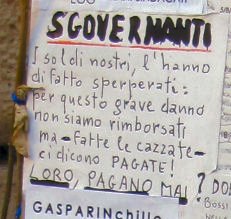 SGOVERNANTI
I soldi nostri, l'hanno
di fatto sperperati:
per questo grave danno
non siamo rimborsati
ma-fatte le cazzate-
ci dicono PAGATE!
LORO, PAGANO MAI?
GASPARINChillo
DO
Bossi